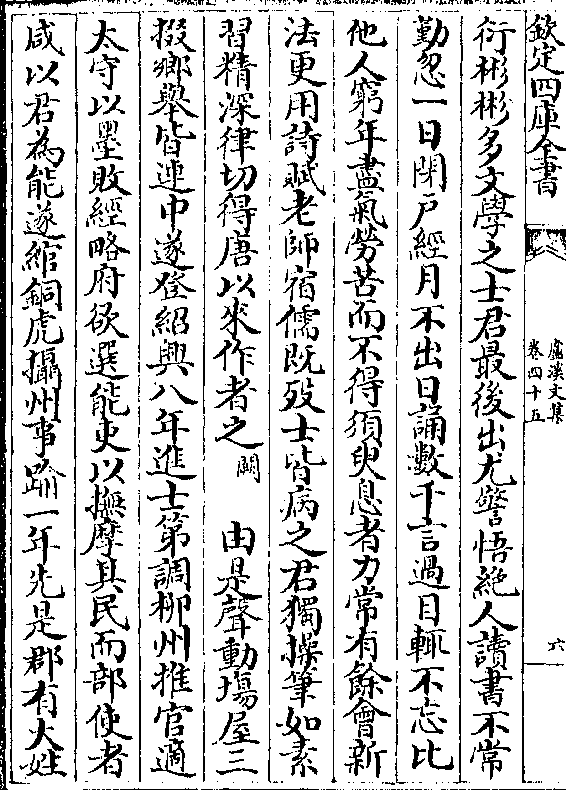 欽定四庫全書
盧溪文集
卷四十五
六
衍彬彬多文學之士君最後出尤警悟絶人讀書不常
勤忽一日閉戸經月不出日誦數千言過目輒不忘比
他人窮年盡氣勞苦而不得須臾息者力常有餘會新
法更用詩賦老師宿儒既歿士皆病之君獨操筆如素
習精深律切得唐以來作者之闕 由是聲動塲屋三
掇鄉舉皆連中遂登紹興八年進士第調柳州推官適
太守以墨敗經略府欲選能吏以撫摩其民而部使者
咸以君為能遂綰銅虎攝州事踰一年先是郡有大姓